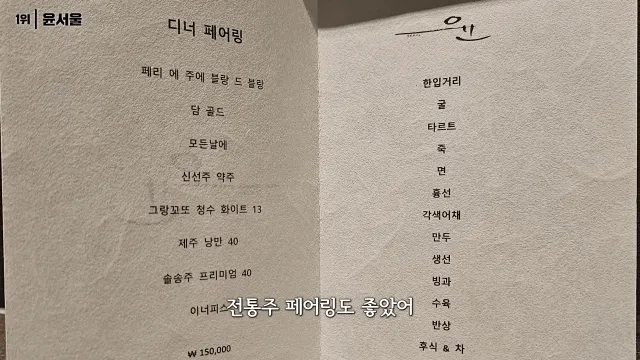 1위 | 윤서울
디너 페어링
페리 에 주에 블랑 드 블랑
담 골드
모든날에
신선주 약주
그랑꼬또 청수 화이트 13
제주 낭만 40
솔송주 프리미엄 40
이너피스
₩ 150,000
윤
한입거리
굴
타르트
죽
면
홍선
각색어채
만두
생선
빙과
수육
반상
후식 & 차
전통주 페어링도 좋았어